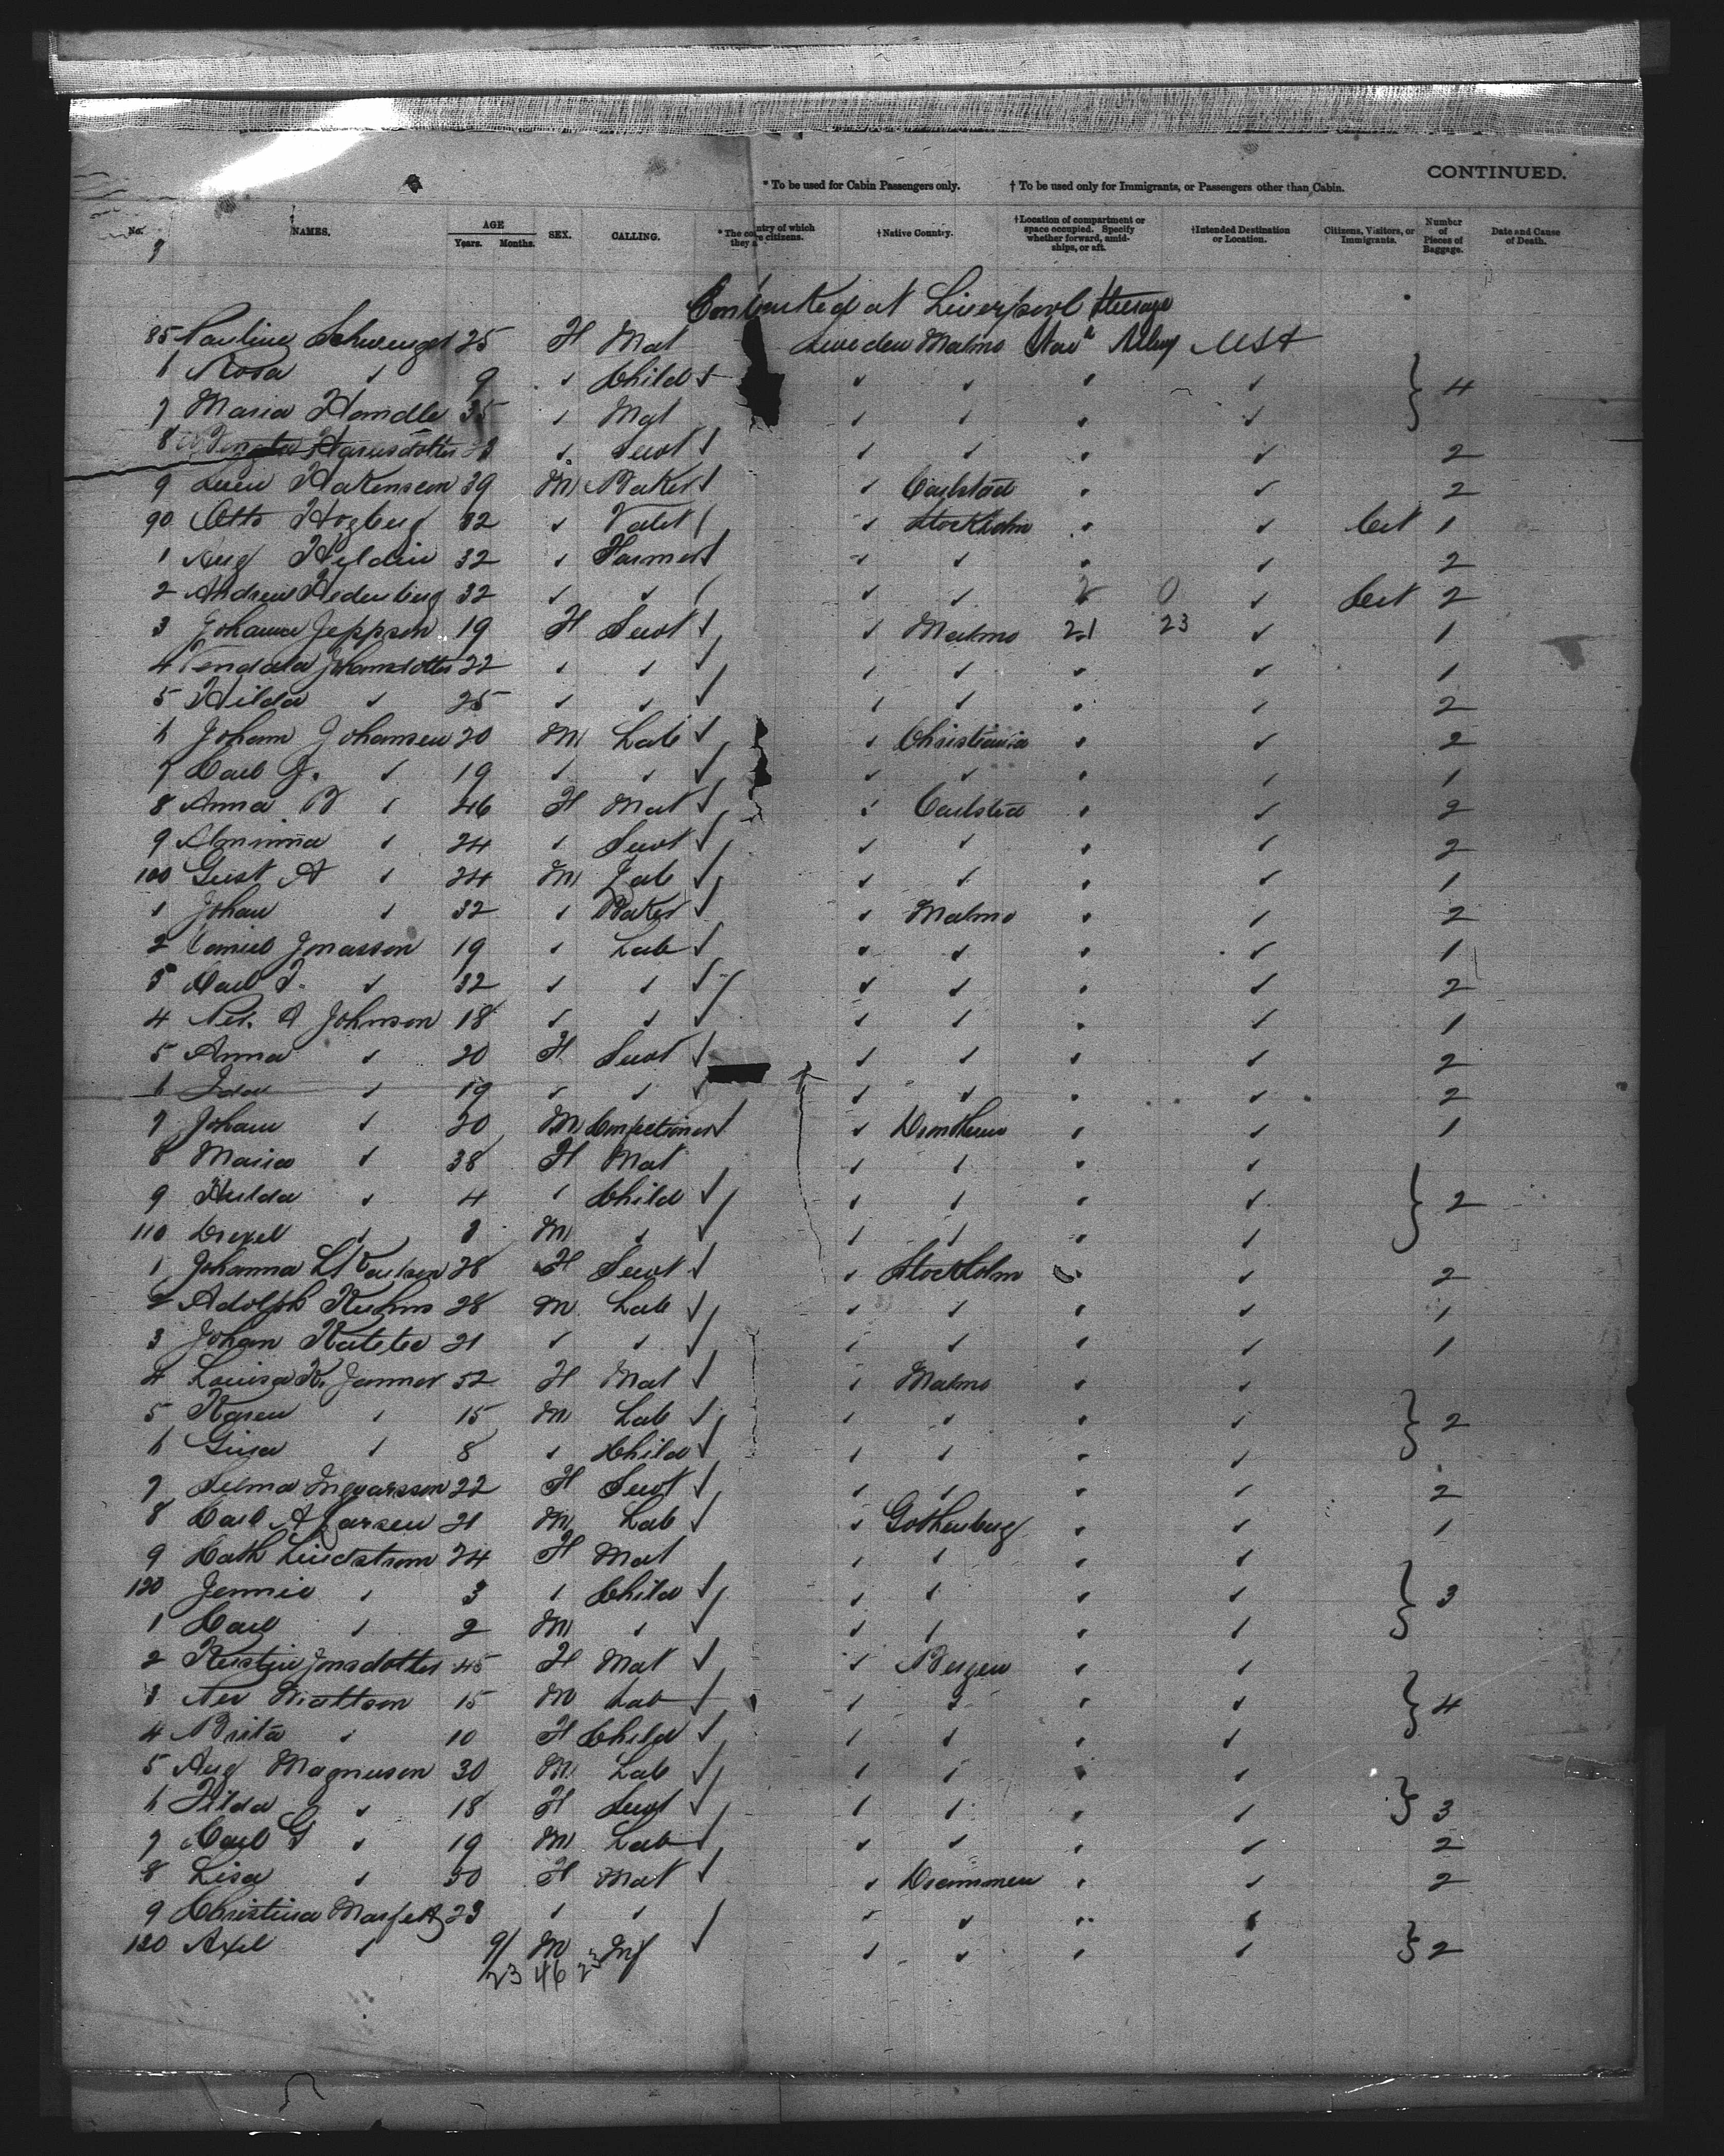 CONTINUED.
* To be used for Cabin Passengers only. † To be used only for Immigrants, or Passengers other than Cabin.
No. NAMES. AGE Years. Months. SEX. CALLING. * The country of which they are citizens. †Native Country. †Location of compartment or space occupied. Specify whether forward, amidships, or aft. †Intended Destination or Location. Citizens, Visitors, or Immigrants. Number of Pieces of Baggage. Date and Cause of Death.
Embarked at Liverpool Steerage
85 Pauline Schwengel 25 H Mat Sweden Malmo USA
6 Rosa " 9 " Child " " " " 4
7 Maria 35 " Mat " " " "
8 Hansdotter " Servt " " " " 2
9 Hakenson 39 M Baker " Carlstad " " 2
90 Otto Hogberg 32 " Valet " Stockholm " " Cit 1
1 Aug Heldin 32 " Farmer " " " " 2
2 Andrew Hedenberg 32 " " " " 2 0 " Cit 2
3 Johanna Jeppson 19 H Servt " Malmo 21 23 " 1
4 Johansdotter 22 " " " " " " 1
5 Hilda " 25 " " " " " " 2
6 Johann Johansen 20 M Lab " Christiania " " 2
7 Carl J. " 19 " " " " " " 1
8 Anna B " 46 H Mat " Carlstad " " 2
9 " 24 " Servt " " " " 2
100 Gust A " 24 M Lab " " " " 1
1 Johan " 32 " Baker " Malmo " " 2
2 Jonasson 19 " Lab " " " " 1
3 Carl " 32 " " " " " " 2
4 A Johnson 18 " " " " " " 1
5 Anna " 20 H Servt " " " " 2
6 Ida " 19 " " " " " " 2
7 Johan " 20 M Confectioner " Drontheim " " 1
8 Maria " 38 H Mat " " " "
9 Hulda " 4 " Child " " " " 2
110 " M " " " " "
1 Johanna L Karlson 28 H Servt " Stockholm " " 2
2 Adolph Kuhns 28 M Lab " " " " 1
3 Johan 21 " " " " " " 1
4 Louisa K. Janner 52 H Mat " Malmo " "
5 Karen " 15 M Lab " " " " 2
6 " 8 " Child " " " "
7 Selma Ingvarsson 22 H Servt " " " " 2
8 Carl A Larsen 21 M Lab " Gothenburg " " 1
9 Cath Lindstrom 24 H Mat " " " "
120 Jennie " 3 " Child " " " " 3
1 Carl " 2 M " " " " "
2 Jonsdotter 45 H Mat " Bergen " "
3 Mattson 15 M Lab " " " " 4
4 Brita " 10 H Child " " " "
5 Aug Magnuson 30 M Lab " " " "
6 Hilda " 18 H Servt " " " " 3
7 Carl G " 19 M Lab " " " " 2
8 Lisa " 50 H Mat " Drammen " " 2
9 Christina 23 " " " " " "
130 Axel " 9/ M Inf " " " " 2
23 46 23